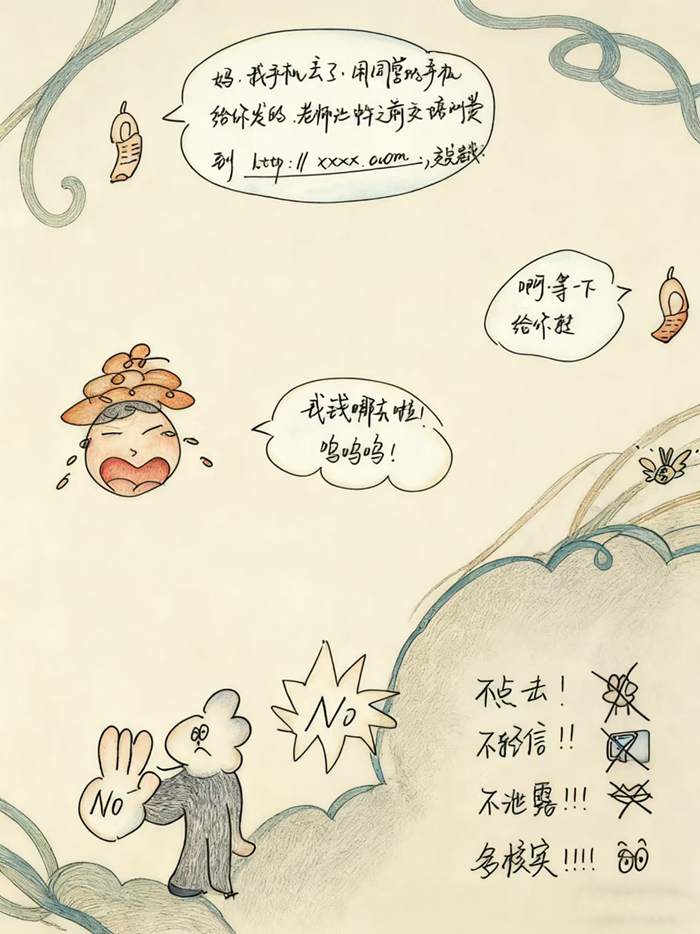 妈.我手机丢了.用同学的手机
给你发的.老师让中午之前交培训费
到 http://xxxx.com.,交完告我.
啊.等一下
给你转
我钱哪去啦!
呜呜呜!
No
No
不点击!
不轻信!!
不泄露!!!
多核实!!!!